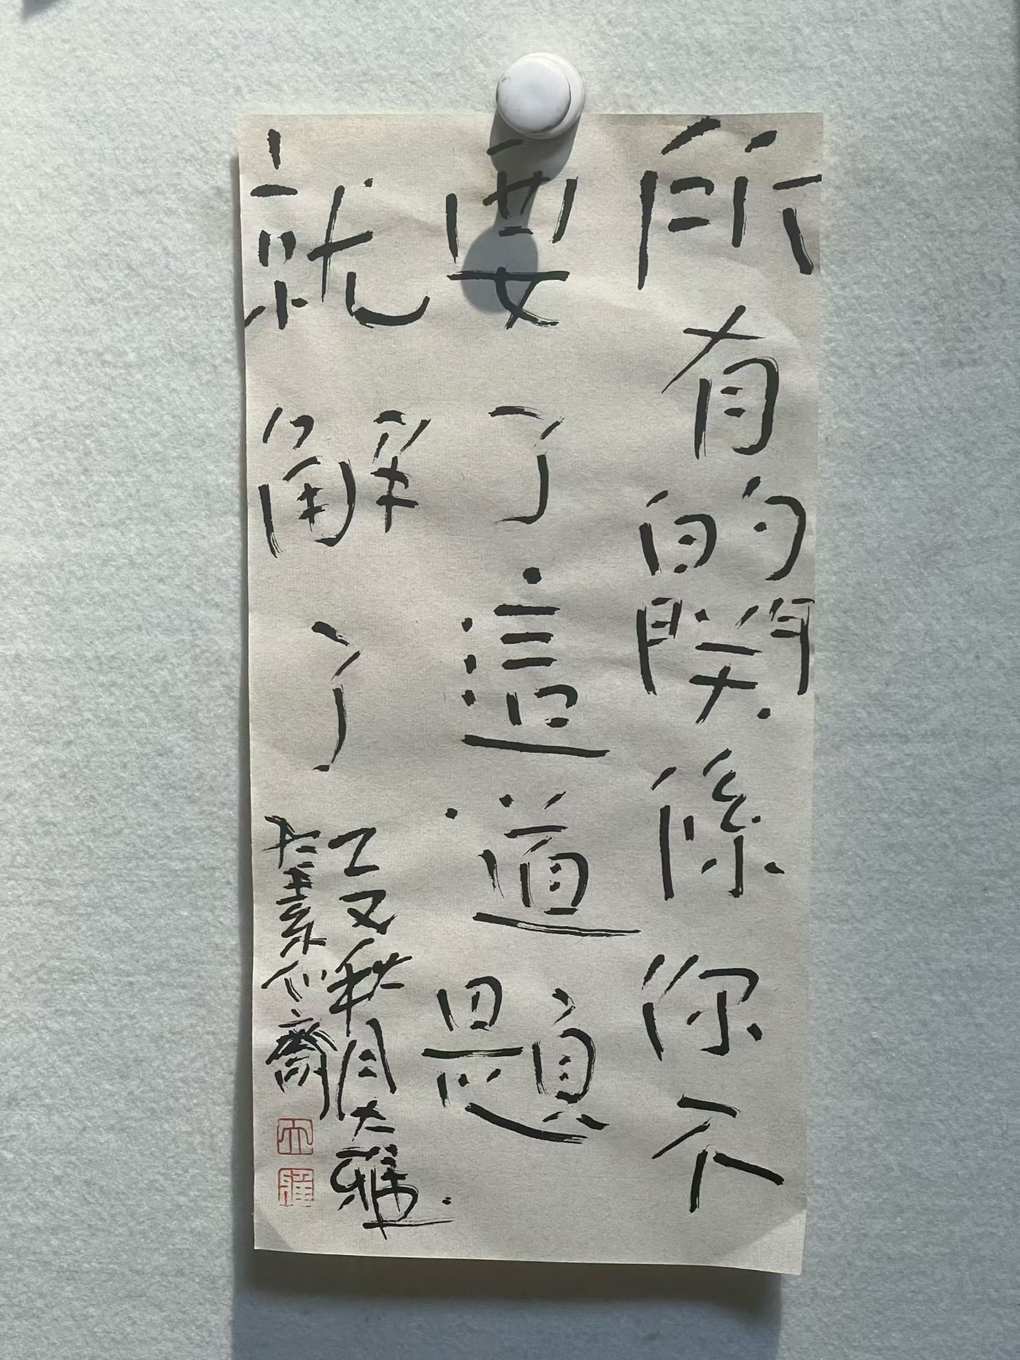 所有的関係你不
要了這道題
就解了
乙巳秋月大雅
於素心齋
大
雅